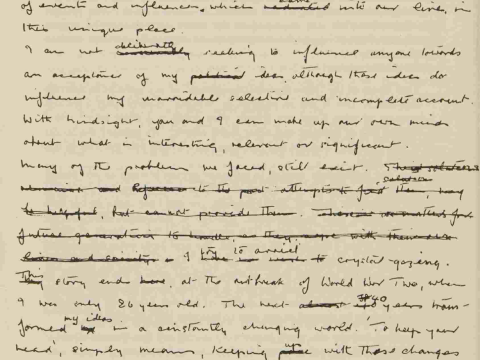 of events and influences, which into our lives, in
this unique place.
I am not deliberately seeking to influence anyone towards
an acceptance of my political ideas, although those ideas do
influence my unavoidable selection and incomplete account.
With hindsight, you and I can make up our own minds
about what is interesting, relevant or significant.
Many of the problems we faced, still exist.
solutions
and reference to the past attempts to find them, may
be helpful, but cannot provide them. These are matters for
future generations to handle, as they cope with their own
lives and I try to avoid crystal-gazing.
This story ends here, at the outbreak of World War Two, when
I was only 26 years old. The next 40 years trans-
formed my ideas in a constantly changing world. 'To keep your
head', simply means, keeping up with those changes